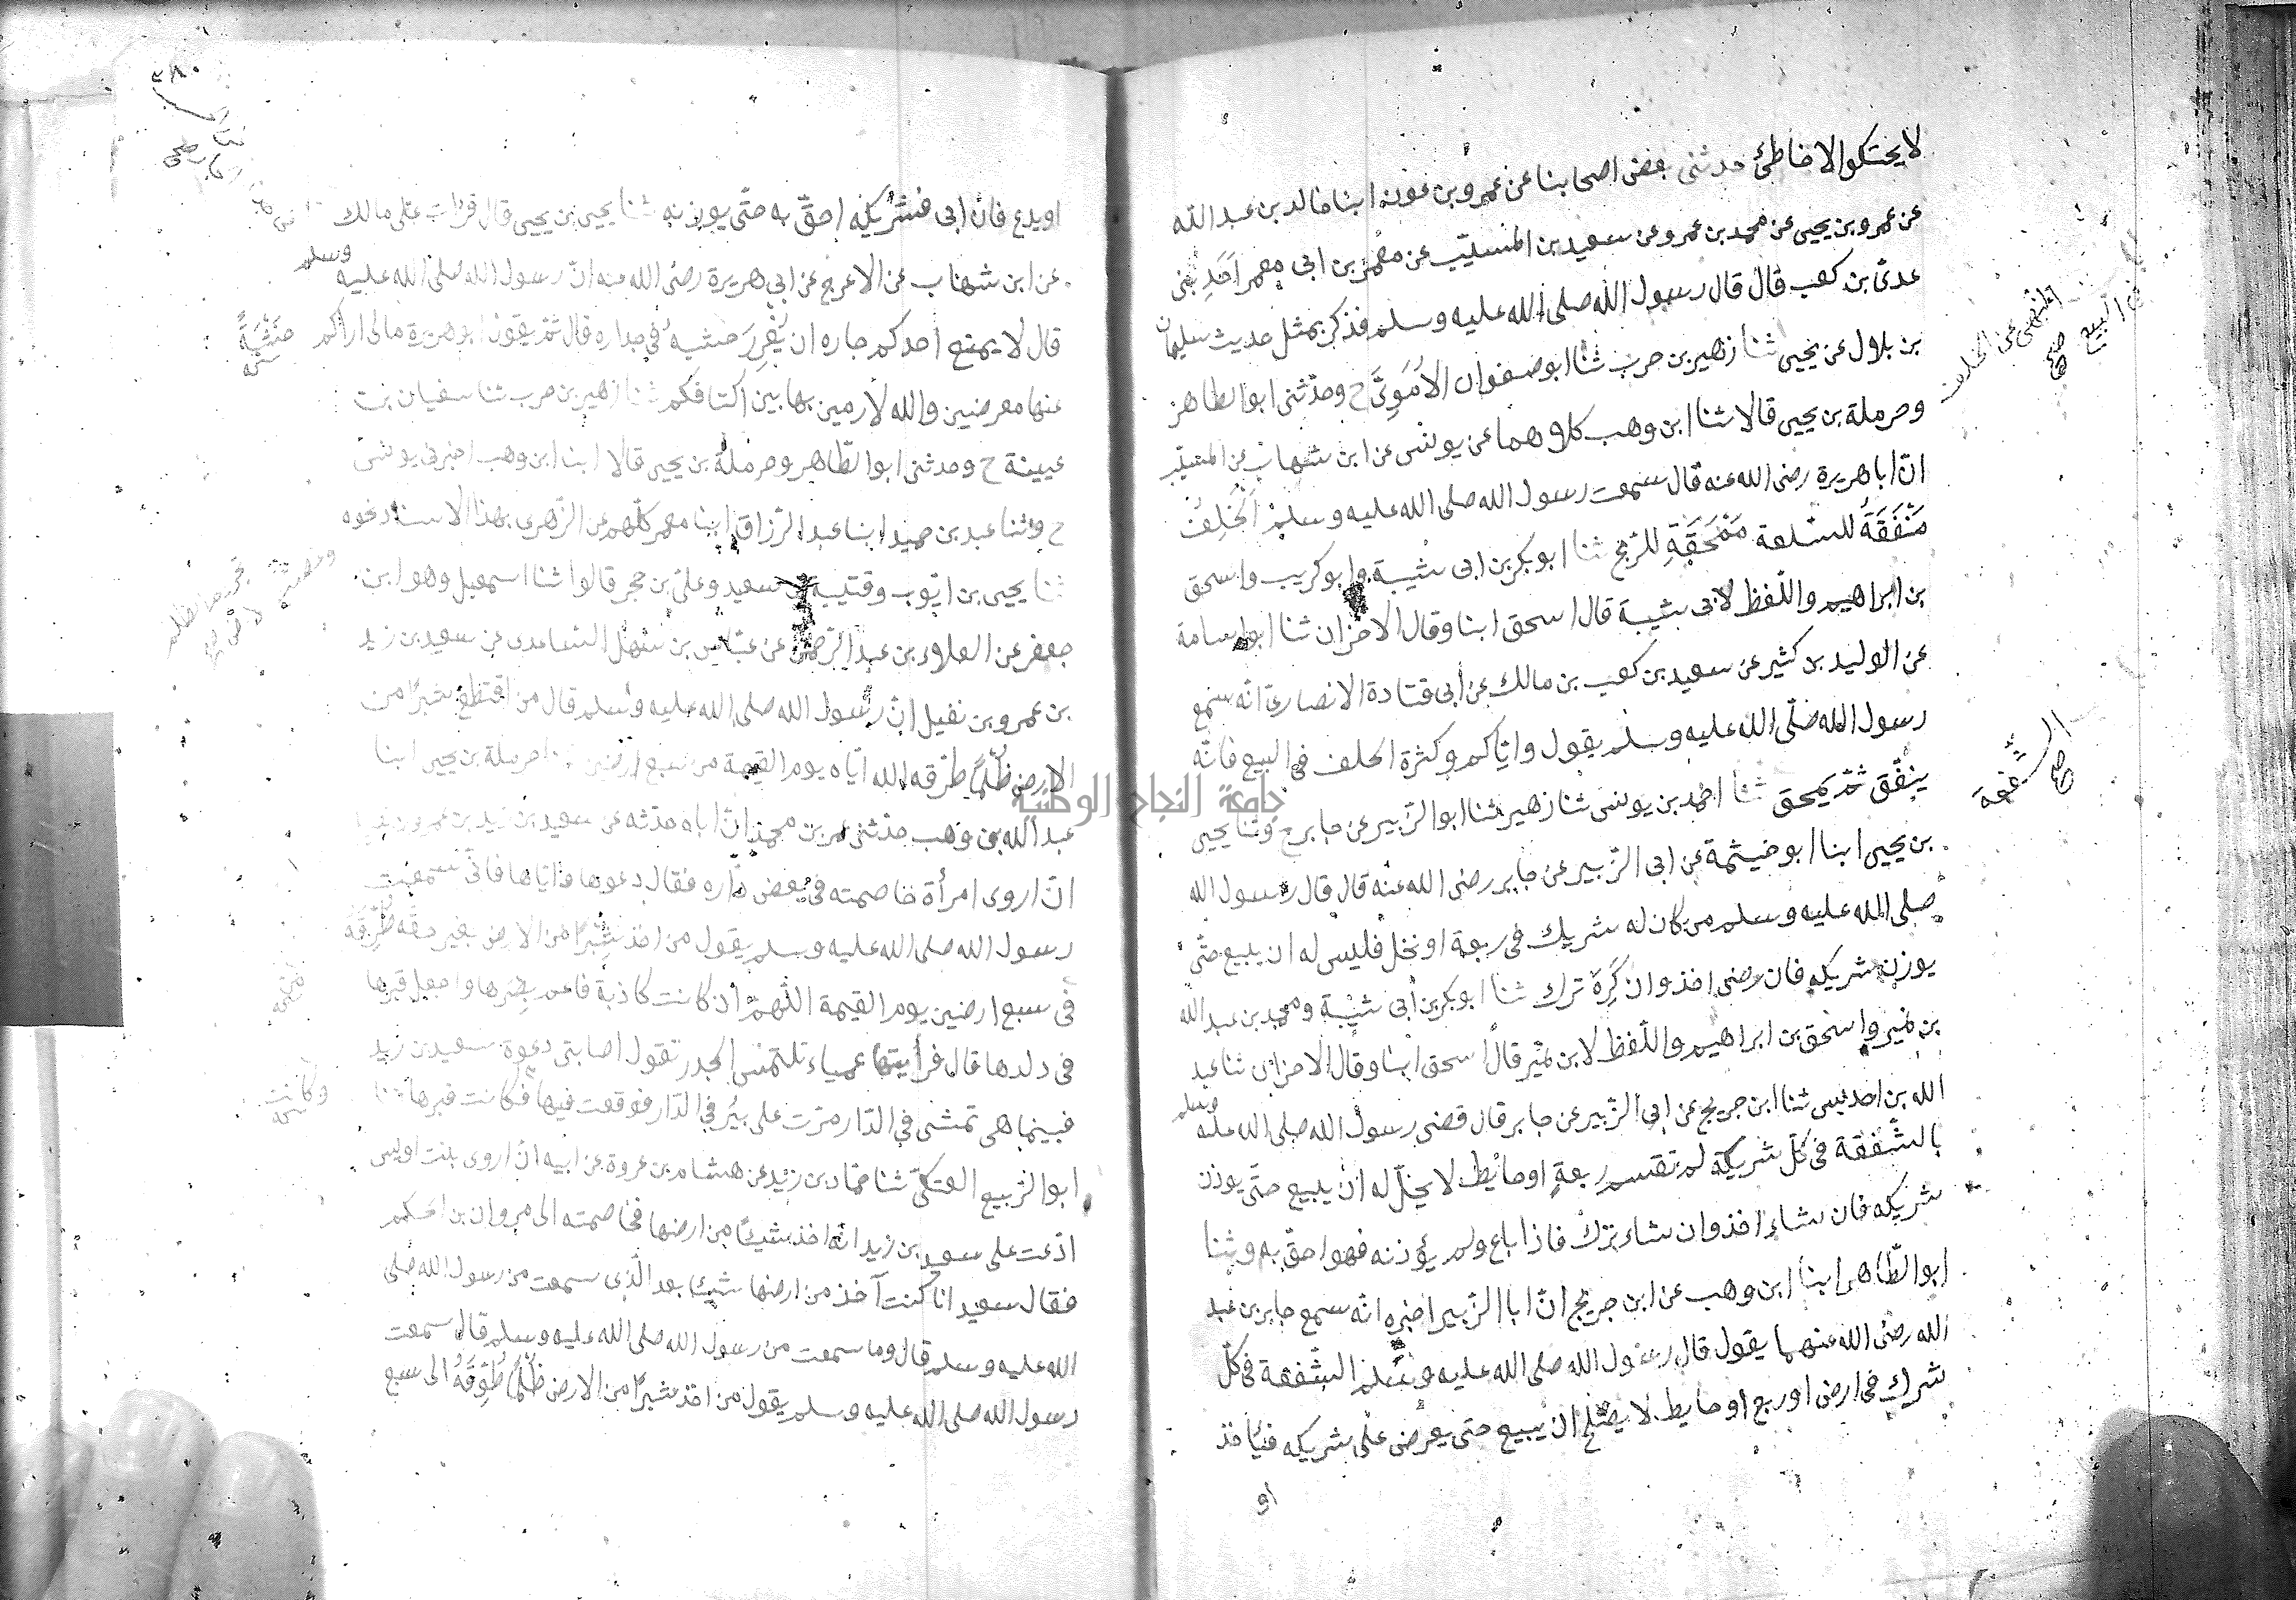 لا يحتكر الا خاطئ حدثنى بعض اصحابنا عن عمرو بن عون ابنا خالد بن عبد الله
عن عمرو بن يحيى عن محمد بن عمرو عن سعيد بن المسيّب عن معمر بن ابى معمر احَدِ بنى
عدىّ بن كعب قال قال رسول الله صلى الله عليه وسلم فذكر بمثل حديث سليمان
بن بلال عن يحيى ثنا زهير بن حرب ثنا ابو صفوان الاُمَوِىَّ ح وحدّثنى ابو الطاهر
وحرملة بن يحيى قالا ثنا ابن وهب كلاهما عن يونس عن ابن شهاب عن المسيّب
انّ ابا هريرة رضى الله عنه قال سمعت رسول الله صلى الله عليه وسلم الحَلِفُ
مَنْفَقَةٌ للسّلعة مَمْحَقَةٌ للرّبح ثنا ابو بكر بن ابى شيبة وابو كريب واسحق
بن ابراهيم واللّفظ لابى شيبة قال اسحق ابنا وقال الاخران ثنا ابو اسامة
عن الوليد بن كثير عن سعيد بن كعب بن مالك عن ابى قتادة الانصارىّ انّه سمع
رسول الله صلّى الله عليه وسلم يقول وايّاكم وكثرة الحلف فى البيع فانّه
ينفّق ثمّ يمحق ثنا احمد بن يونس ثنا زهير ثنا ابو الزّبير عن جابر ح وثنا يحيى
بن يحيى ابنا ابو خيثمة عن ابى الزّبير عن جابر رضى الله عنه قال قال رسول الله
صلى الله عليه وسلم من كان له شريك فى ربعة او نخل فليس له ان يبيع حتّى
يوذن شريكه فان رضى اخذ وان كَرِهَ ترك ثنا ابو بكر بن ابى شيبة ومحمد بن عبد الله
بن نمير واسحق بن ابراهيم واللّفظ لابن نمير قال اسحق ابنا وقال الاخران ثنا عبد
الله بن ادريس ثنا ابن جريج عن ابى الزّبير عن جابر قال قضى رسول الله صلى الله عليه وسلم
بالشّفعة فى كلّ شركة لم تقسم ربعةٍ او حايط لا يحلّ له ان يبيع حتّى يوذن
شريكه فان شاء اخذ وان شاء ترك فاذا باع ولم يؤذنه فهو احقّ به وثنا
ابو الطّاهر ابنا ابن وهب عن ابن جريج انّ ابا الزّبير اخبره انّه سمع جابر بن عبد
الله رضى الله عنهما يقول قال رسول الله صلى الله عليه وسلم الشّفعة فى كلّ
شرك فى ارض او ربع او حايط لا يصلح ان يبيع حتى يعرض على شريكه فيأخذ
او
النهى عن الحلف
فى البيع صح
الشفعة
صح
٣٨٠
او يدع فان ابى فشريكه احقّ به حتّى يوذنه ثنا يحيى بن يحيى قال قرات على مالك
عن ابن شهاب عن الاعرج عن ابى هريرة رضى الله عنه انّ رسول الله صلى الله عليه وسلم
قال لا يمنع احدكم جاره ان يَغْرِزَ خشبه فى جداره قال ثمّ يقول ابو هريرة مالى اراكم
خشبةً
عنها معرضين والله لارمين بها بين اكتافكم ثنا زهير بن حرب ثنا سفيان بن
عيينة ح وحدثنى ابو الطّاهر وحرملة بن يحيى قالا ابنا ابن وهب اخبرنى يونس
ح وثنا عبد بن حميد ابنا عبد الرّزاق ابنا معمر كلّهم عن الزّهرى بهذا الاسناد نحوه
ثنا يحيى بن ايّوب وقتيبة بن سعيد وعلىّ بن حجر قالوا ثنا اسمعيل وهو ابن
جعفر عن العلاء بن عبد الرّحمن عن عبّاس بن سهل السّاعدى عن سعيد بن زيد
بن عمرو بن نفيل انّ رسول الله صلى الله عليه وسلم قال من اقتطع شبرًا من
الارض ظُلْمًا طوّقه الله ايّاه يوم القيمة من سبع ارضين ثنا حرملة بن يحيى ابنا
عبد الله بن وهب حدّثنى عمر بن محمد انّ اباه حدّثه عن سعيد بن زيد بن عمرو بن
انّ اروى امرأة خاصمته فى بعض داره فقال دعوها وايّاها فانّى سمعت
رسول الله صلى الله عليه وسلم يقول من اخذ شِبْرًا من الارض بغير حقّه طُوِّقَهُ
فى سبع ارضين يوم القيمة اللّهمّ ان كانت كاذبة فاعم بصرها واجعل قبرها
فى دارها قال فرأيتها عمياء تلتمس الجدر تقول اصابتنى دعوة سعيد بن زيد
فبينما هى تمشى فى الدّار مرّت على بئر فى الدّار فوقعت فيها فكانت قبرها ثنا
وكانت
ابو الرّبيع العتكىّ ثنا حمّاد بن زيد عن هشام بن عروة عن ابيه انّ اروى بنت اويس
ادّعت على سعيد بن زيد انّه اخذ شيئًا من ارضها فخاصمته الى مروان بن الحكم
فقال سعيد انا كنت آخذ من ارضها شيئًا بعد الّذى سمعت من رسول الله صلى
الله عليه وسلم قال وما سمعت من رسول الله صلى الله عليه وسلم قال سمعت
رسول الله صلى الله عليه وسلم يقول من اخذ شبرًا من الارض ظُلْمًا طُوِّقَهُ الى سبع
جامعة النجاح الوطنية